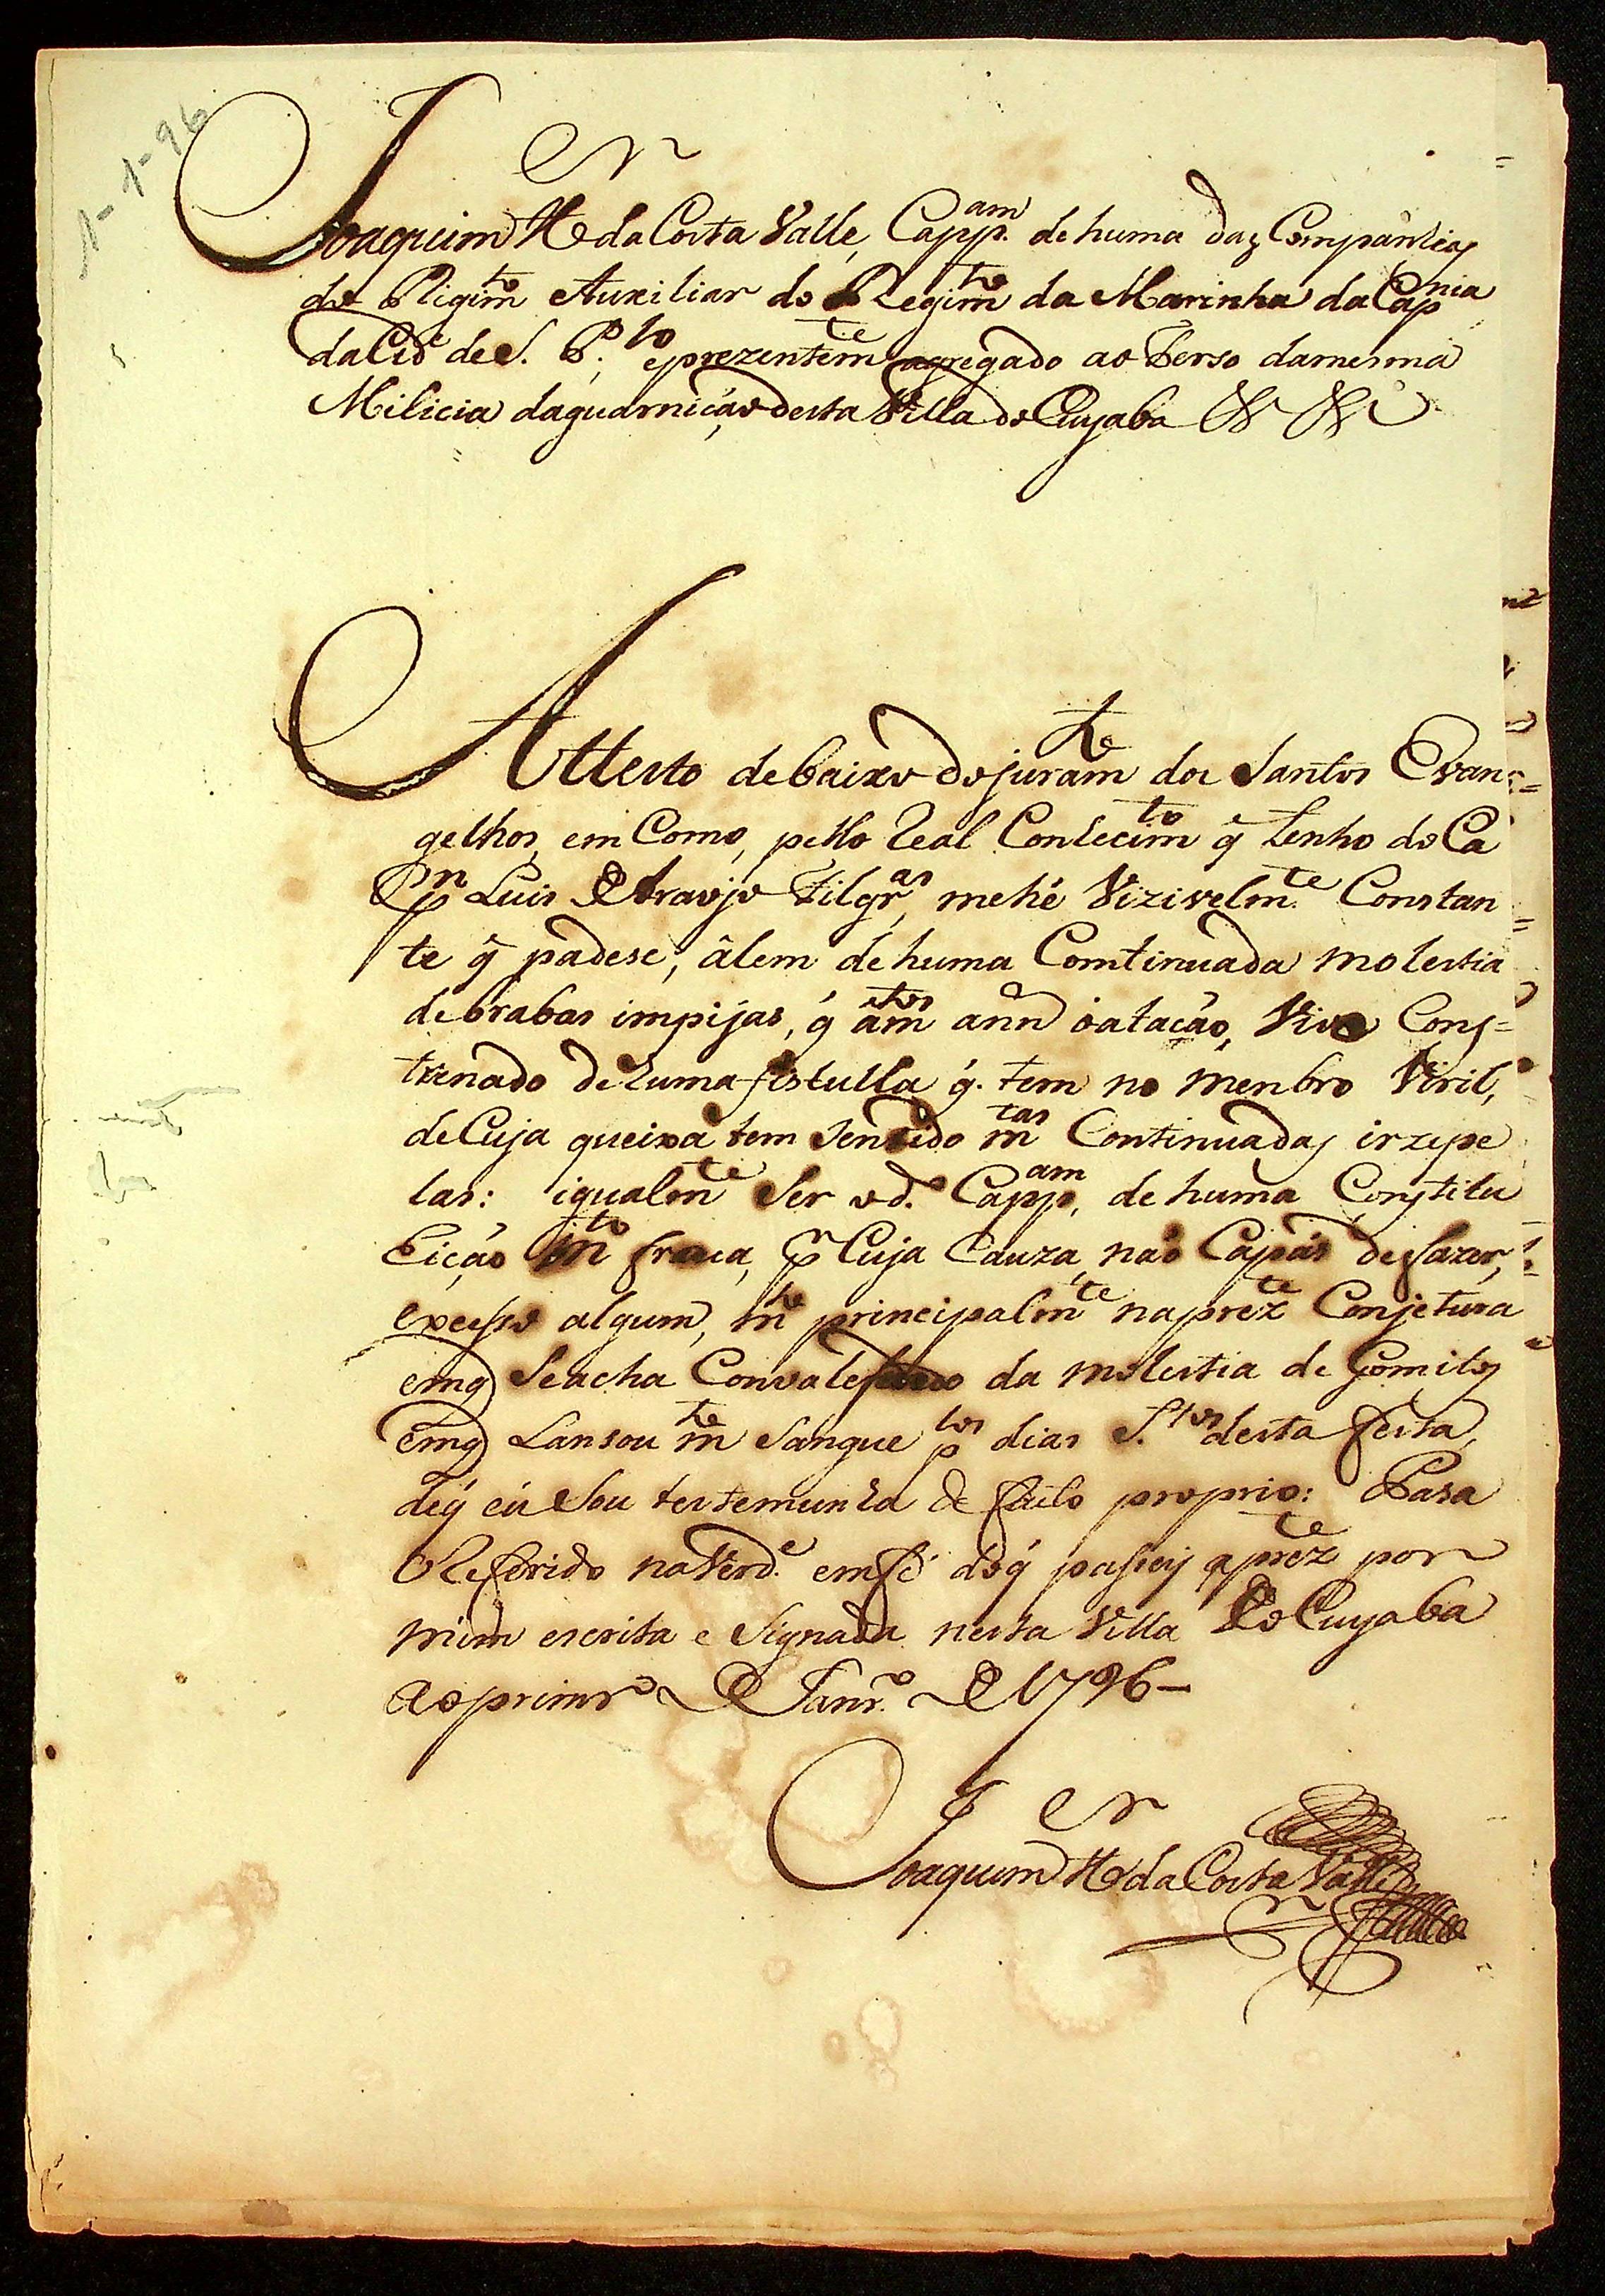 1-1-96
Joaquim Je.r da Costa Valle, Capp.am de huma das Companhias
do Rigim.to Auxiliar do Regim.to da Marinha da Cap.nia
da Cid.e de S. P.lo e prezentem.te agregado ao Terso da mesma
Milicia da guarnição desta Villa do Cuyaba &.ª &.ª
Attesto debaixo do juram.to dos Santos Evan=
gelhos, em Como, pello Real Conhecim.to q̃ tenho do Ca
p.m Luis de Araojo Filgr.as, me hé Vizivelm.te Constan=
te q̃ padese, âlem de huma Comtinuada molestia
de brabas impijas, q́ á m.tos ann.os o atacão, Vive Cons=
trenado de huma fistulla q́. tem no menbro Viril,
de Cuja queixa tem sentido m.tas Continuadas irzipe
las: igualm.te Ser o d.o Capp.am, de huma Constitu
hição m.to fraca, p.r Cuja Cauza, não Capás de fazer,
exesso algum, m.to principalm.te na prez.te Conjetura
em q̃ Se acha Convalesendo da molestia de Gomitos
em q̃ Lansou m.to Sangue p.los dias S.tos desta festa,
de q́ eu Sou testemunha de facto proprio: Pasa
O Referido na Verd.e em fé do q́ pasey a prez.te por
mim escrita e Signada nesta Villa do Cuyaba
ao primr.o de Janr.o de 1796—
Joaquim Je.r da Costa Valle